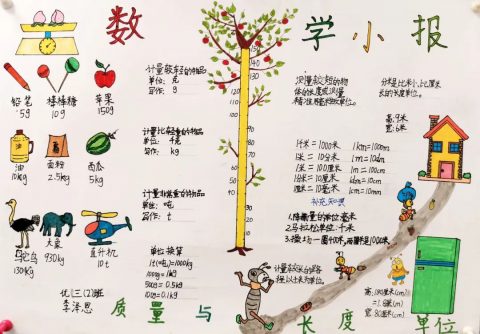 数学小报
铅笔 棒棒糖 苹果
5g 10g 150g
油 面粉 西瓜
10kg 2.5kg 5kg
鸵鸟 大象 直升机
130kg 930kg 10t
计量较轻的物品
单位:克
写作:g
计量比较重的物品
单位:千克
写作:kg
计量非常重的物品
单位:吨
写作:t
单位换算
1t(吨)=1000kg
1000g=1kg
500g=0.5kg
100g=0.1kg
优(三(2)班
李泽恩
150
140
130
120
110
100
90
80
70
60
50
40
30
20
10
测量较短的物
体的长度或测量
分米是比米小,比厘米
长的长度单位。
高:9米
宽:6米
1千米=1000米 1km=1000m
1米=10分米 1m=10dm
1米=100厘米 1m=100cm
1分米=10厘米 1dm=10cm
1厘米=10毫米 1cm=10mm
补充知识
1.降雨量的单位:毫米
2.马拉松单位:千米
计量较长的路程
宽:80厘米(cm)
质量与长度单位